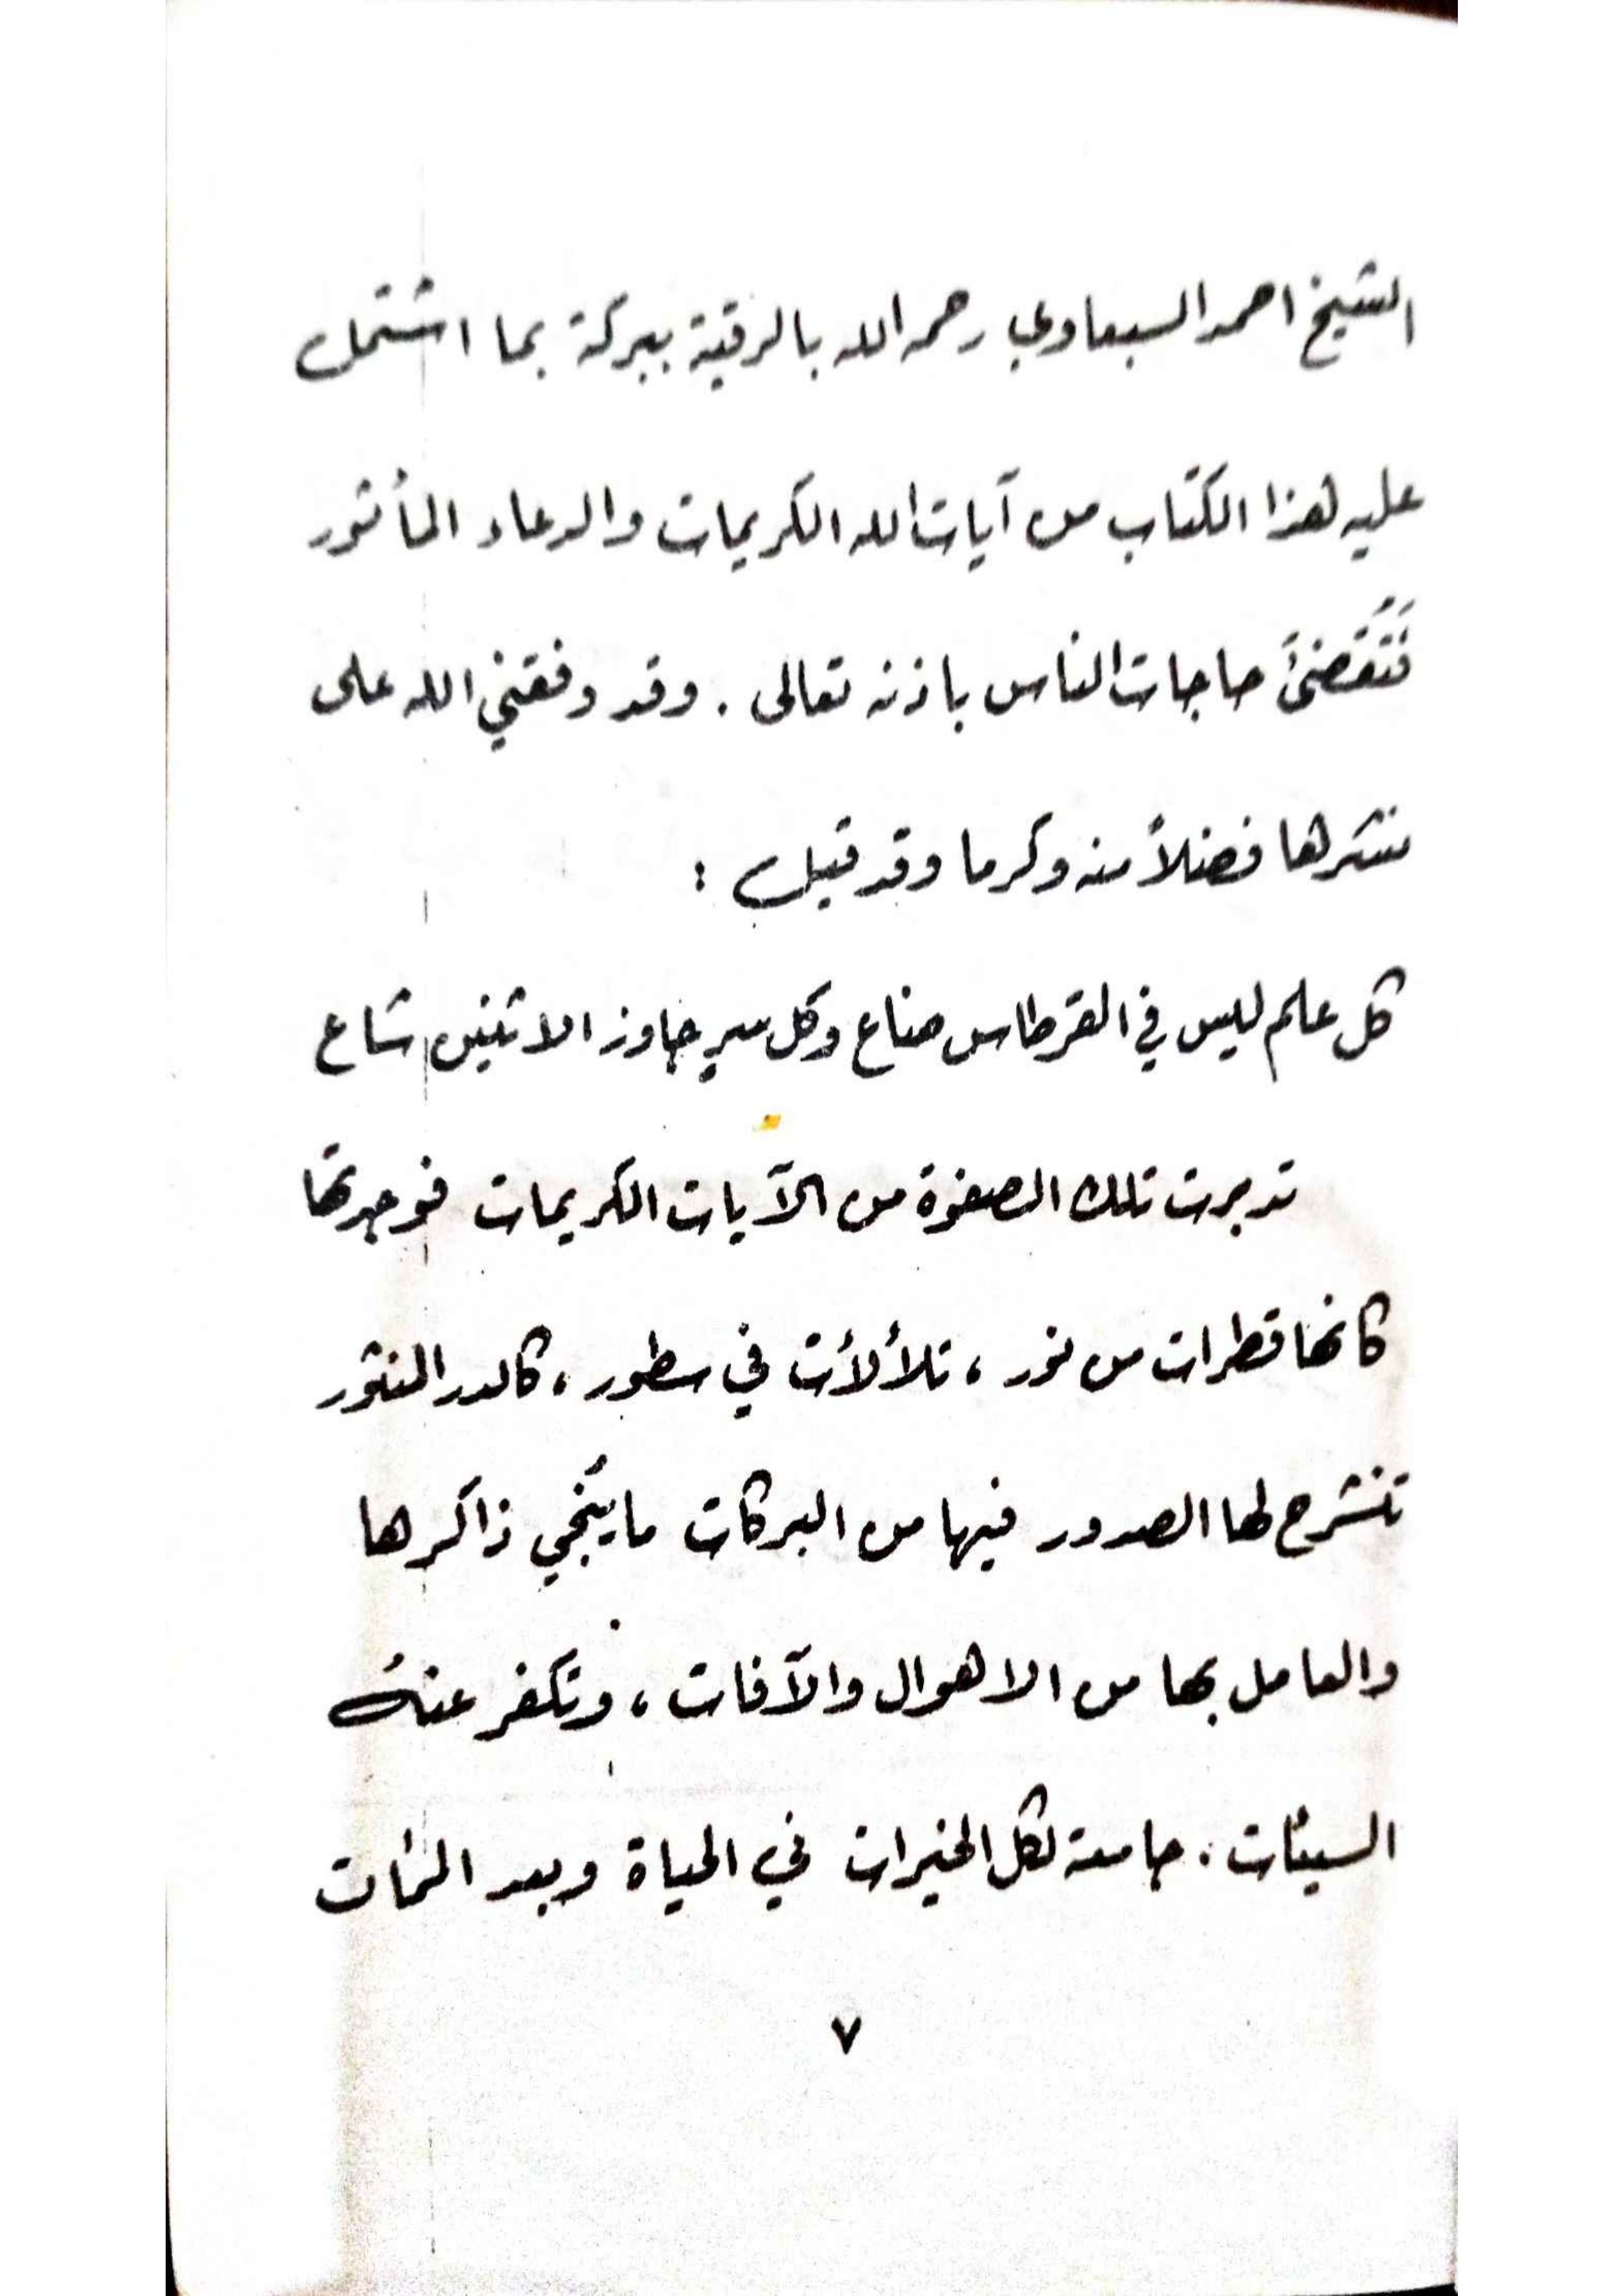 الشيخ احمد السبعاوي رحمه الله بالرقية ببركة بما اشتمل
عليه هذا الكتاب من آيات الله الكريمات والدعاء المأثور
فَتُقضىَ حاجات الناس باذنه تعالى . وقد وفقني الله على
نشرها فضلاً منه وكرما وقد قيل :
كل علم ليس في القرطاس ضاع وكل سرٍ جاوز الاثنين شاع
تدبرت تلك الصفوة من الآيات الكريمات فوجدتها
كانها قطرات من نور ، تلألأت في سطور ، كالدر المنثور
تنشرح لها الصدور فيها من البركات ما يُنجي ذاكرها
والعامل بها من الاهوال والآفات ، وتكفر عنهُ
السيئات . جامعة لكل الخيرات في الحياة وبعد المَمات
٧